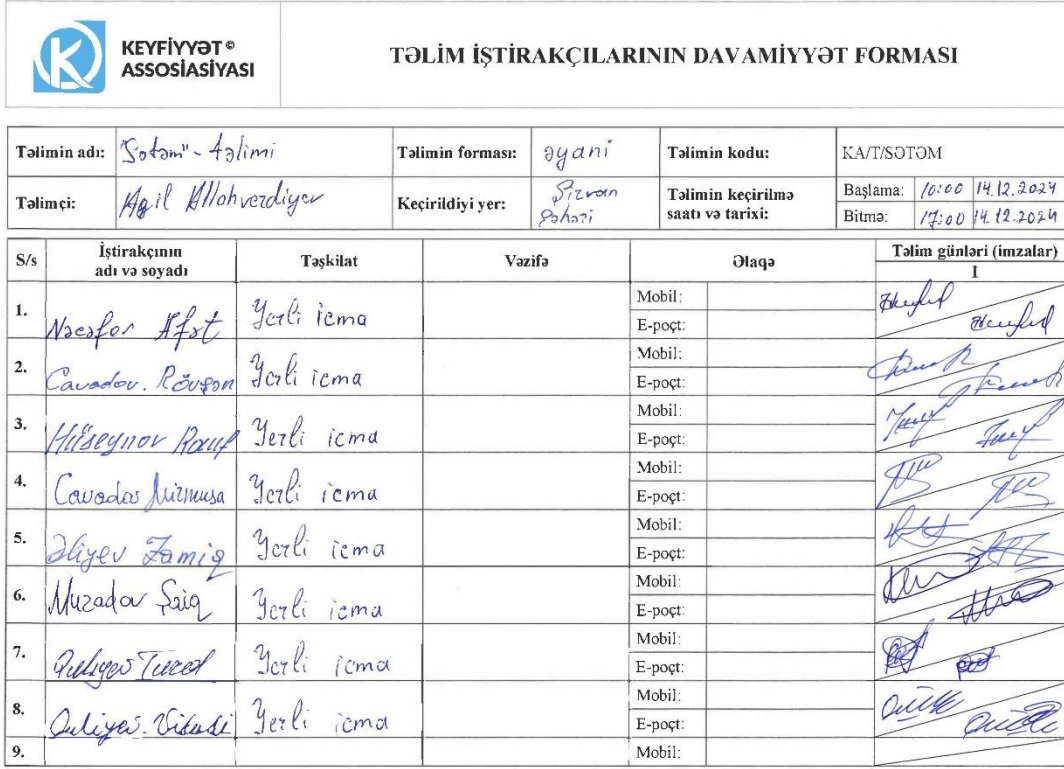 KEYFİYYƏT®
ASSOSİASİYASI
TƏLİM İŞTİRAKÇILARININ DAVAMİYYƏT FORMASI
Təlimin adı: "Sətəm" - təlimi Təlimin forması: əyani Təlimin kodu: KA/T/SƏTƏM
Təlimçi: Aqil Allahverdiyev Keçirildiyi yer: Şirvan şəhəri Təlimin keçirilmə saatı və tarixi: Başlama: 10:00 14.12.2024
Bitmə: 17:00 14.12.2024
S/s İştirakçının adı və soyadı Təşkilat Vəzifə Əlaqə Təlim günləri (imzalar)
I
1. Nəcəfov Afət Yerli icma Mobil:
E-poçt:
2. Cavadov. Rövşən Yerli icma Mobil:
E-poçt:
3. Hüseynov Rauf Yerli icma Mobil:
E-poçt:
4. Cavadov Mirmusa Yerli icma Mobil:
E-poçt:
5. Əliyev Zamiq Yerli icma Mobil:
E-poçt:
6. Muradov Şaiq Yerli icma Mobil:
E-poçt:
7. Quliyev Tural Yerli icma Mobil:
E-poçt:
8. Quliyev. Yerli icma Mobil:
E-poçt:
9. Mobil: